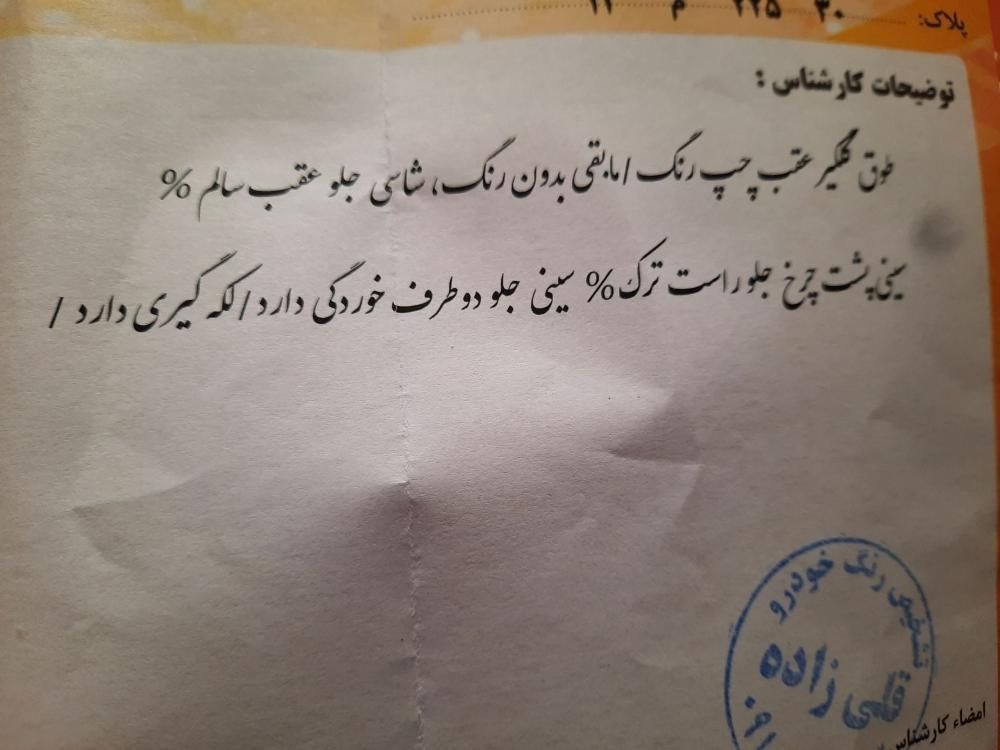 پلاک:
توضیحات کارشناس :
طوق گلگیر عقب چپ رنگ / مابقی بدون رنگ، شاسی جلو عقب سالم %
سینی پشت چرخ جلو راست ترک % سینی جلو دو طرف خوردگی دارد / لکه گیری دارد /
تشخیص رنگ خودرو
امضاء کارشناس